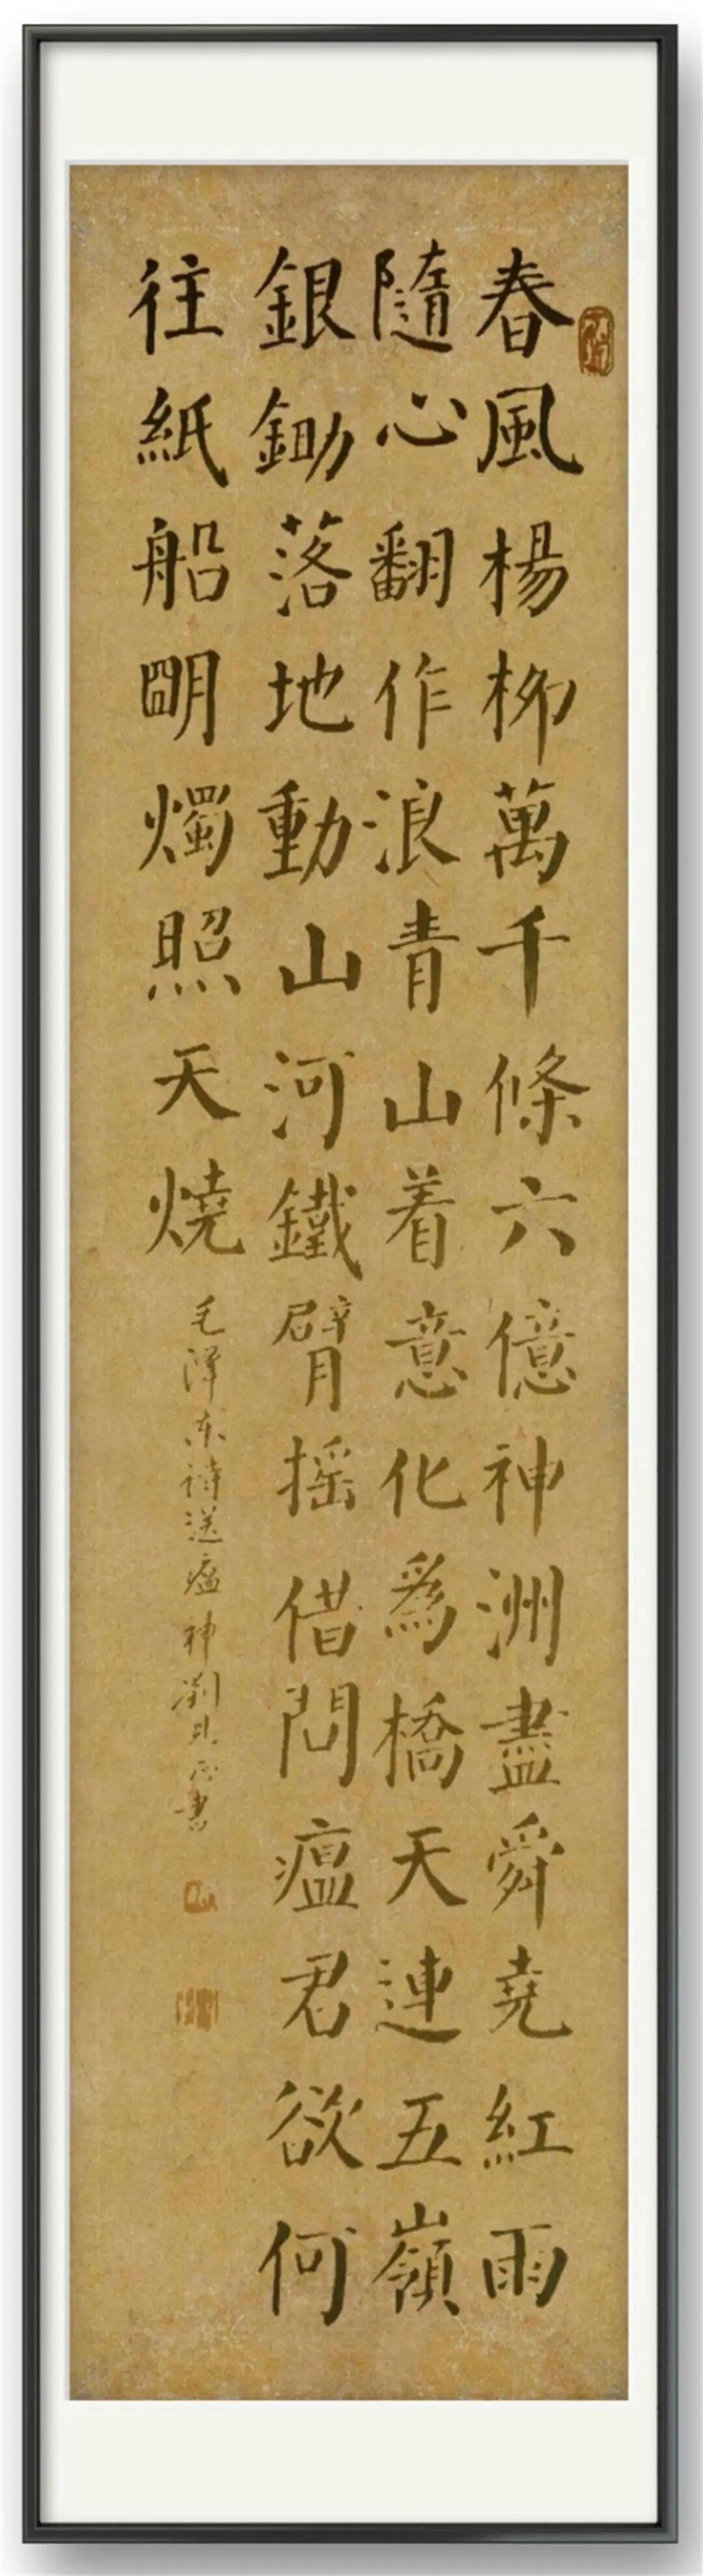 春風楊柳萬千條六億神洲盡舜堯紅雨
隨心翻作浪青山着意化爲橋天連五嶺
銀鋤落地動山河鐵臂摇借問瘟君欲何
往紙船朙燭照天燒
毛泽东诗送瘟神刘书